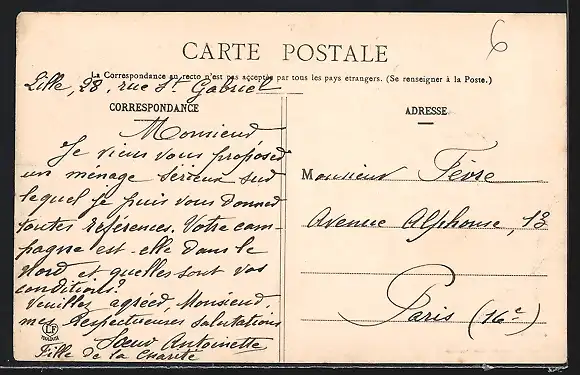 6
CARTE POSTALE
La Correspondance au recto n'est pas acceptée par tous les pays etrangers. (Se renseigner à la Poste.)
Lille, 28, rue St. Gabriel
CORRESPONDANCE
Monsieur
Je viens vous proposer
un ménage sérieux sur
lequel je puis vous donner
toutes références. Votre cam-
pagne est-elle dans le
Nord et quelles sont vos
conditions?
Veuillez agréer, Monsieur,
mes Respectueuses salutations
Sœur Antoinette
Fille de la Charité
LF
TOULOUSE
ADRESSE
Monsieur Fèvre
Avenue Alphonse, 13
Paris (16e)